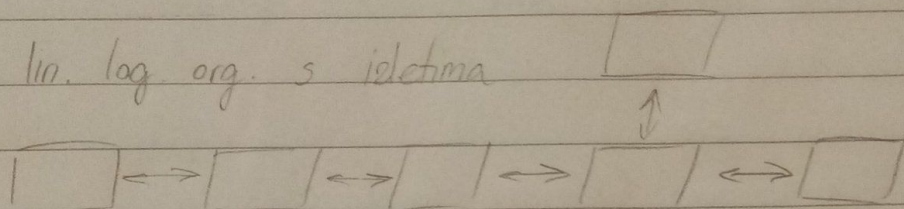 lin. log. org. s izletima